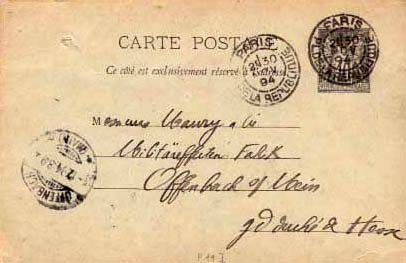 CARTE POSTALE
Ce côté est exclusivement réservé à l'adresse
PARIS
30
94
DE LA REPUBLIQUE
PARIS
30
94
DE LA REPUBLIQUE
Messieurs Maury & Cie
Militäreffekten Fabrik
Offenbach s/ Mein
gd duché de Hesse
OFFENBACH
P 11